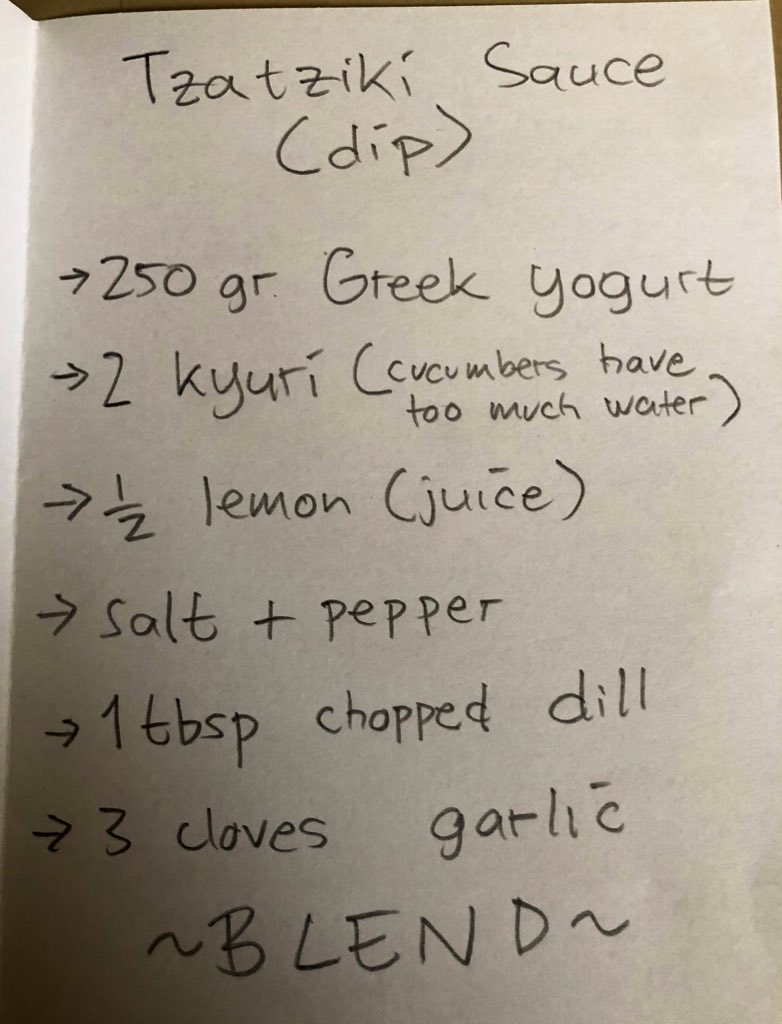 Tzatziki Sauce
(dip)
→ 250 gr. Greek yogurt
→ 2 kyuri (cucumbers have
too much water)
→ 1/2 lemon (juice)
→ salt + pepper
→ 1 tbsp chopped dill
→ 3 cloves garlic
~BLEND~